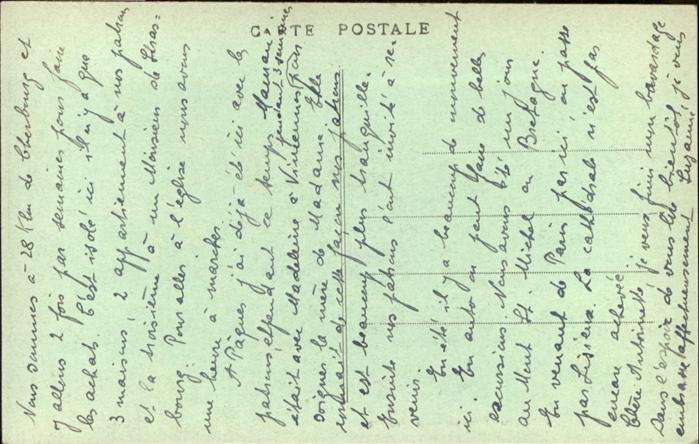 CARTE POSTALE
Nous sommes à 28 Km de Cherbourg et
y allons 2 fois par semaines pour faire
les achats. C'est isolé ici il n'y a que
3 maisons 2 appartiennent à nos patrons
et la troisième à un Monsieur de Stras=
bourg. Pour aller à l'église nous avons
une heure à marcher
A Pâques j'ai déjà été ici avec les
patrons pendant ce temps Maman
était avec Madeleine à Vincennes pour pendant 3 semaines
soigner la mère de Madame. Elle
de cette façon nos patrons
et est beaucoup plus tranquille.
Ensuite nos patrons l'ont invité à re-
venir.
En été il y a beaucoup de mouvement
ici. En auto on peut faire de belles
excursions. Nous avons été un jour
au Mont St Michel en Bretagne.
En venant de Paris par ici on passe
par Lisieux. La cathédrale n'est pas
encore achevé
Chère Antoinette je veux finir mon bavardage
Dans l'espoir de vous lire bientôt, je vous
embrasse affectueusement